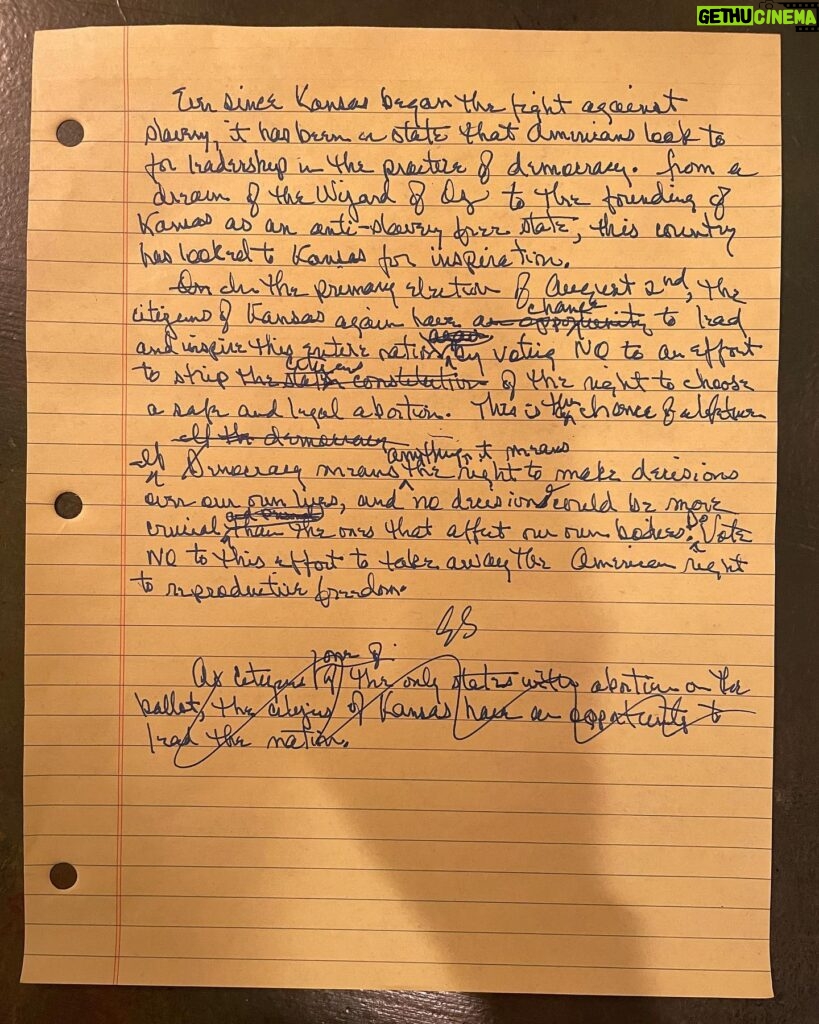 GETHUCINEMA
Ever since Kansas began the fight against
slavery, it has been a state that Americans look to
for leadership in the practice of democracy. From a
dream of the Wizard of Oz to the founding of
Kansas as an anti-slavery free state, this country
has looked to Kansas for inspiration.
On In the primary election of August 2nd, the
chance
citizens of Kansas again have an opportunity to lead
and inspire this entire nation by voting NO to an effort
citizens
to strip the state constitution of the right to choose
a safe and legal abortion. This is the chance of a lifetime
If the democracy anything, it means
If Democracy means the right to make decisions
over our own lives, and no decision could be more
crucial than the ones that affect our own bodies. Vote
NO to this effort to take away the American right
to reproductive freedom.
GS
one of
As citizens of the only states with abortion on the
ballot, the citizens of Kansas have an opportunity to
lead the nation.